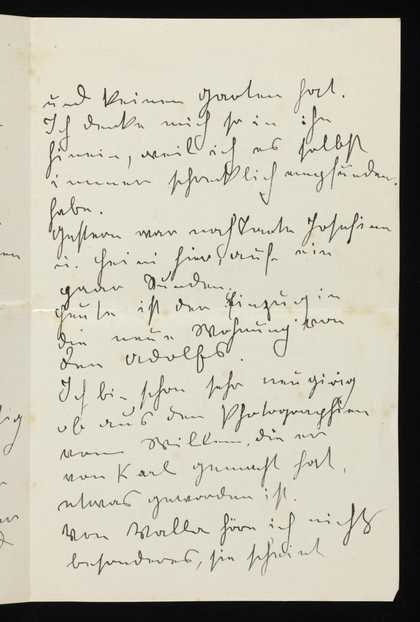 und keinen Garten hat.
Ich denke mich so in ihn
hinein, weil ich es selbst
immer schrecklich empfunden
habe.
Gestern war noch Tante Josefine
u. Heini hier, auf ein
paar Stunden.
Heute ist der Einzug in
die neue Wohnung von
den Adolfs.
Ich bin schon sehr neugierig
ob aus den Photographien
vom Willem, die er
von Karl gemacht hat,
etwas geworden ist.
Von Walla höre ich nichts
besonderes, sie scheint